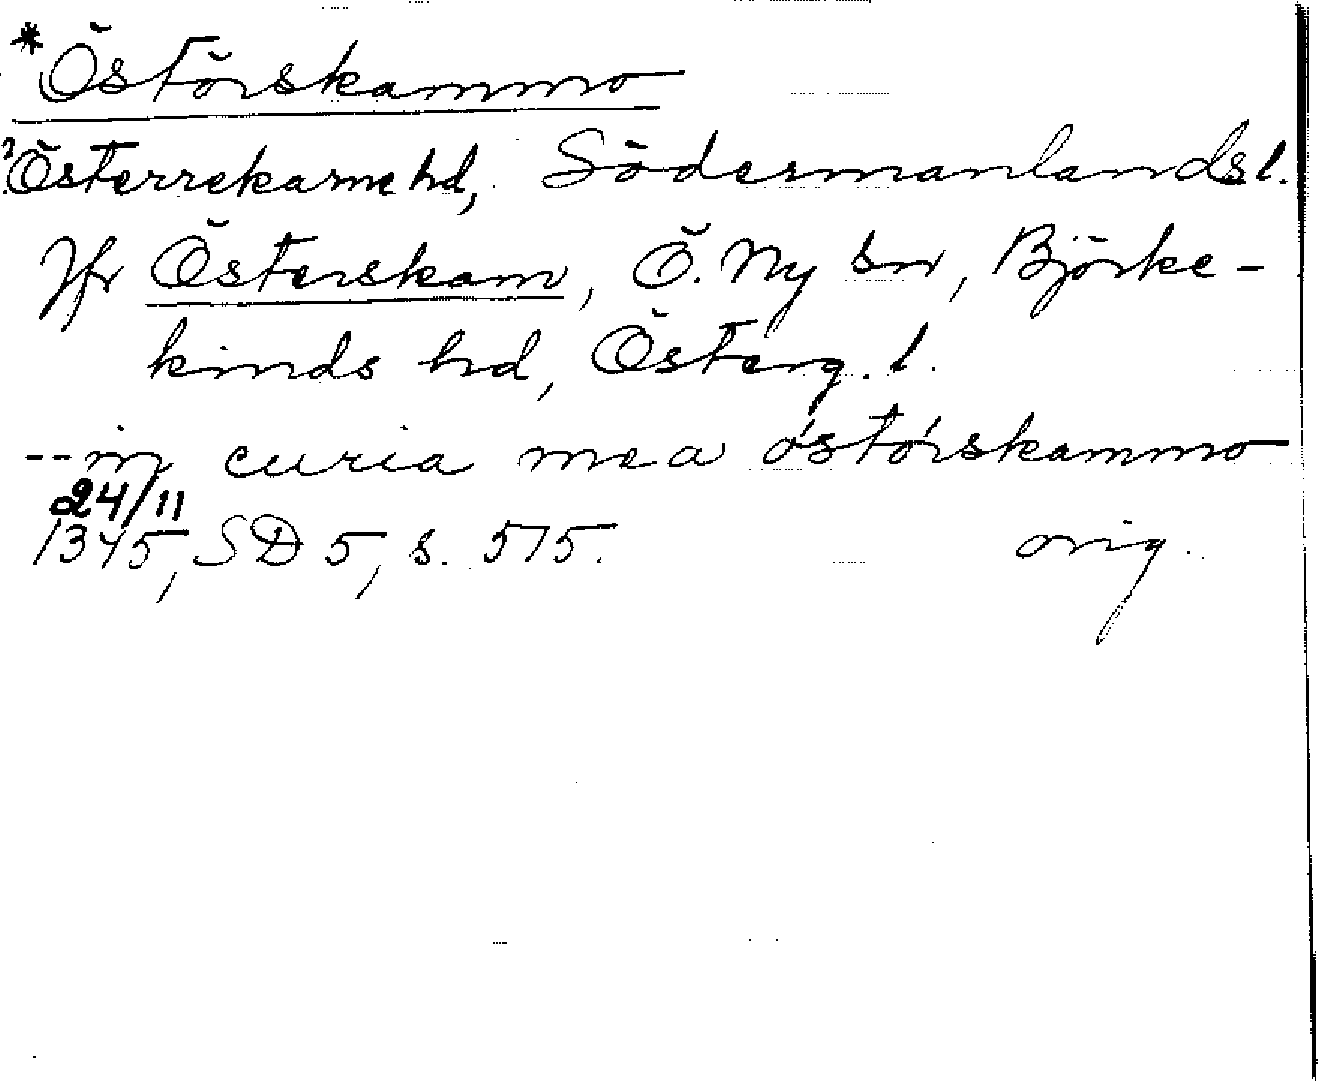 *Östörskammo
?Österrekarne hd, Södermanlands l.
Jfr Österskam, Ö. Ny sn, Björke-
kinds hd, Österg. l.
-- in curia mea östörskammo
24/11
1345, SD 5, s. 575. orig.